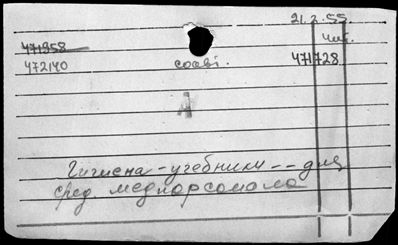 21.3.55.
чит.
471358
472140 соеві. 471728
А
Гигиена - учебники -- для
сред. медперсонала